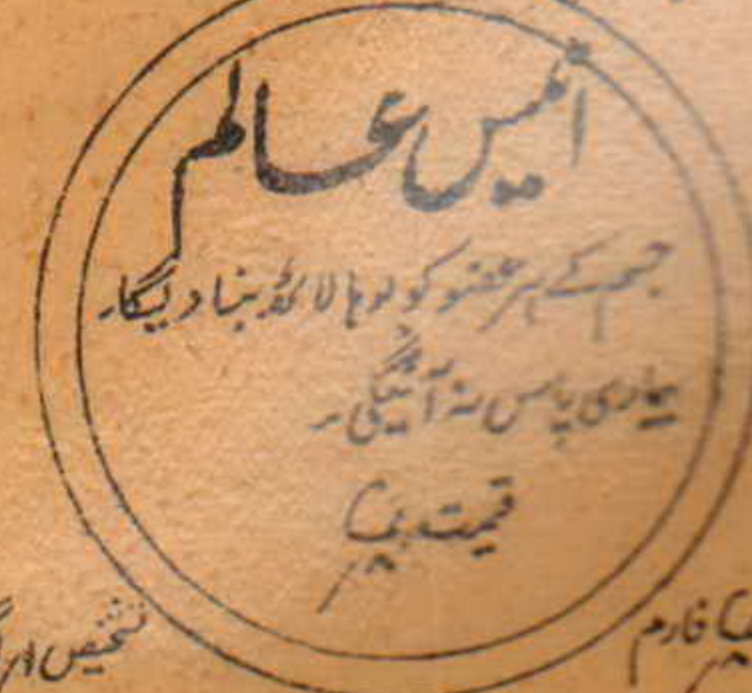 انیس عالم
جسم کے ہر عضو کو لوہا لاٹھ بنا دیگا۔
بیماری پاس نہ آئیگی۔
قیمت
فارم
تشخیص